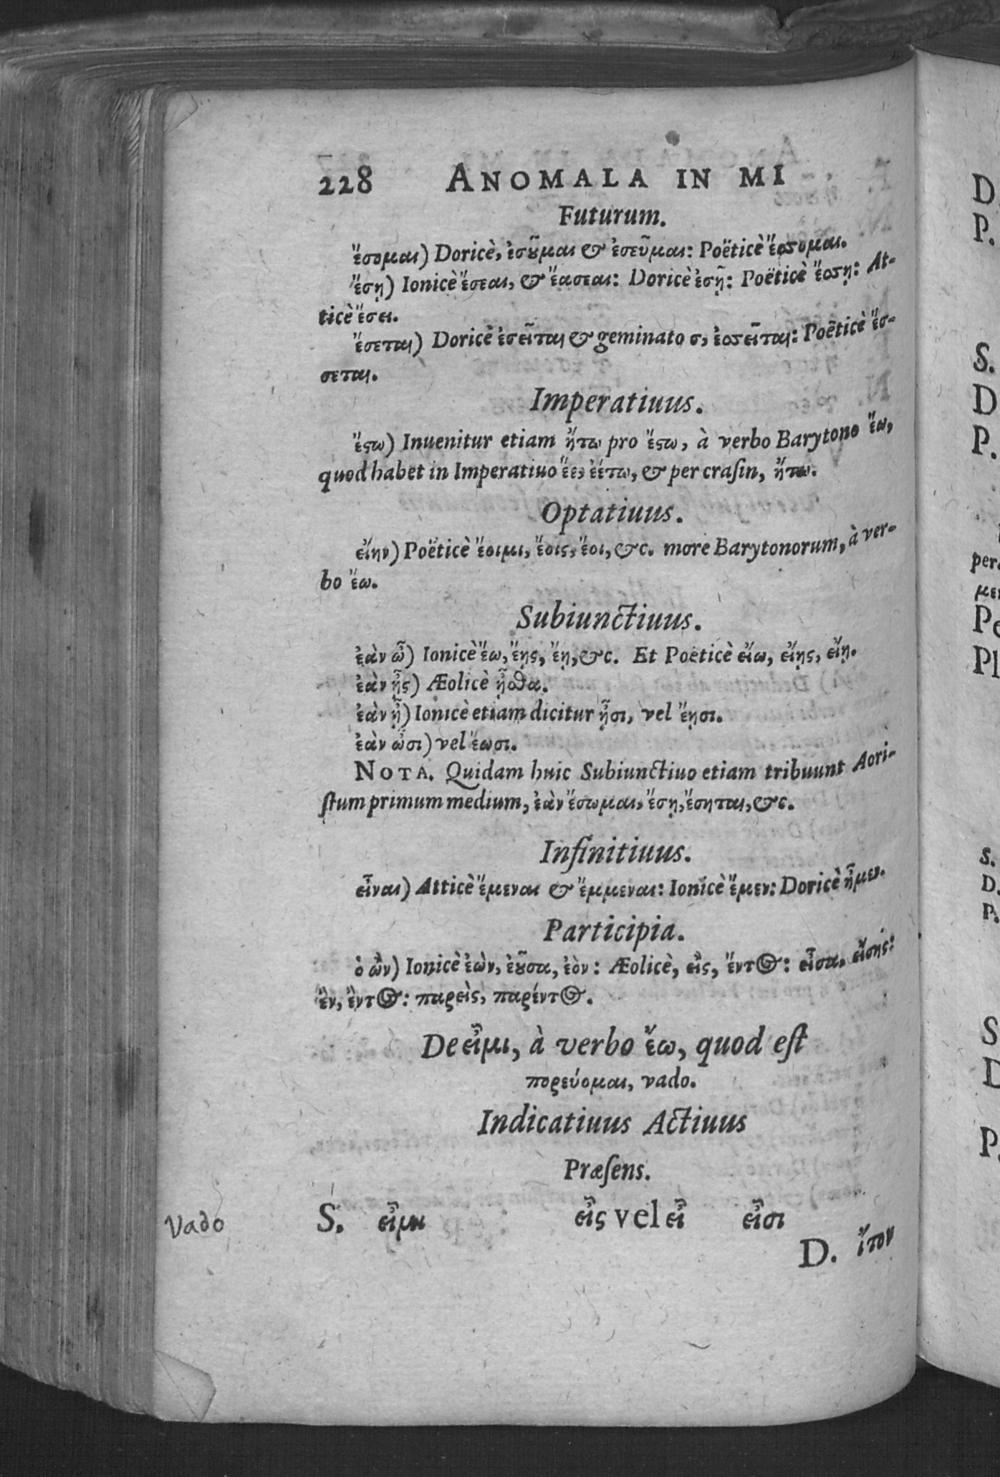 228 ANOMALA IN MI
Futurum.
ἔσομαι) Doricè, ἐσοῦμαι & ἐσεῦμαι: Poëticè ἔσσομαι.
ἔσῃ) Ionicè ἔσεαι, & ἔασεαι: Doricè ἐσῇ: Poëticè ἔσσῃ: At-
ticè ἔσει.
ἔσεται) Doricè ἐσεῖται & geminato σ, ἐσσεῖται: Poëticè ἔσ-
σεται.
Imperatiuus.
ἔστω) Inuenitur etiam ἤτω pro ἔστω, à verbo Barytono ἔω,
quod habet in Imperatiuo ἔε, ἐέτω, & per crasin, ἤτω.
Optatiuus.
εἴην) Poëticè ἔοιμι, ἔοις, ἔοι, &c. more Barytonorum, à ver-
bo ἔω.
Subiunctiuus.
ἐὰν ὦ) Ionicè ἔω, ἔῃς, ἔῃ, &c. Et Poëticè εἴω, εἴῃς, εἴῃ.
ἐὰν ᾖς) Æolicè ᾖσθα.
ἐὰν ᾖ) Ionicè etiam dicitur ᾖσι, vel ἔῃσι.
ἐὰν ὦσι) vel ἔωσι.
NOTA. Quidam huic Subiunctiuo etiam tribuunt Aori-
stum primum medium, ἐὰν ἔσωμαι, ἔσῃ, ἔσηται, &c.
Infinitiuus.
εἶναι) Atticè ἔμεναι & ἔμμεναι: Ionicè ἔμεν: Doricè ἦμεν.
Participia.
ὁ ὢν) Ionicè ἐὼν, ἐοῦσα, ἐὸν: Æolicè, εἲς, ἔντος: εἶσα, εἴσης:
ἒν, ἔντος: παρεὶς, παρέντος.
De εἶμι, à verbo ἔω, quod est
πορεύομαι, vado.
Indicatiuus Actiuus
Præsens.
Vado
S. εἶμι εἶς vel εἶ εἶσι
D. ἴτον
D.
P.
S.
D
P.
per
με
Pe
Pl
S.
D.
P.
S
D
P.